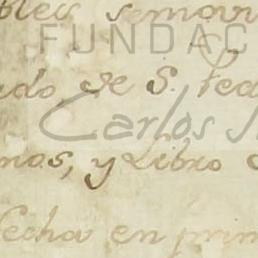 bles semovi
FUNDAC
ado de S. Fe
Carlos
mos, y Libro
fecha en prim